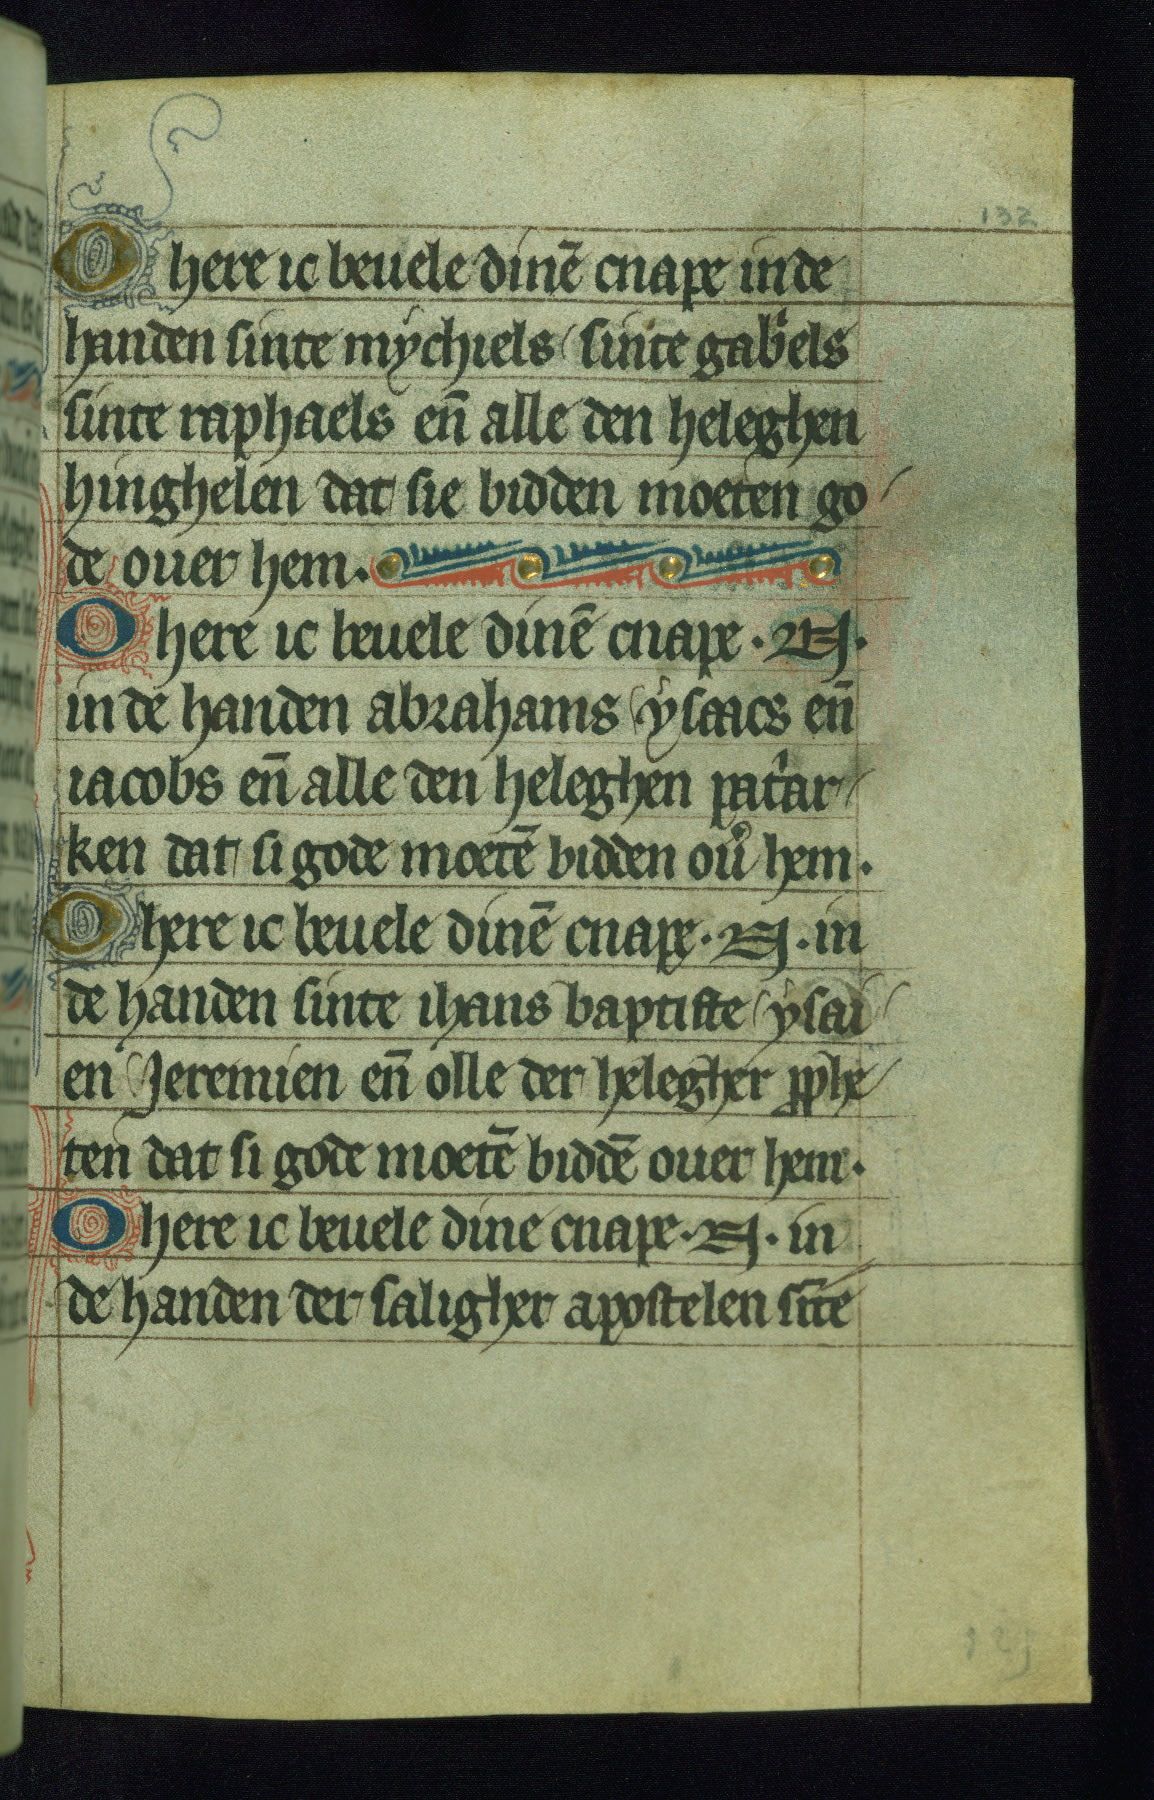 132
O here ic beuele dinē cnape in de
handen sinte mychiels sinte gabⁱels
sinte raphaels en̄ alle den heleghen
hinghelen dat sie bidden moeten go
de ouer hem.
O here ic beuele dinē cnape · N ·
in de handen abrahams ysaacs en̄
iacobs en̄ alle den heleghen patⁱar
ken dat si gode moetē bidden ou͛ hem.
O here ic beuele dinē cnape · N · in
de handen sinte ihans baptiste ysai
en Jeremien en̄ olle der helegher ꝓphe
ten dat si gode moetē biddē ouer hem.
O here ic beuele dine cnape · N · in
de handen der saligher apostelen sīte